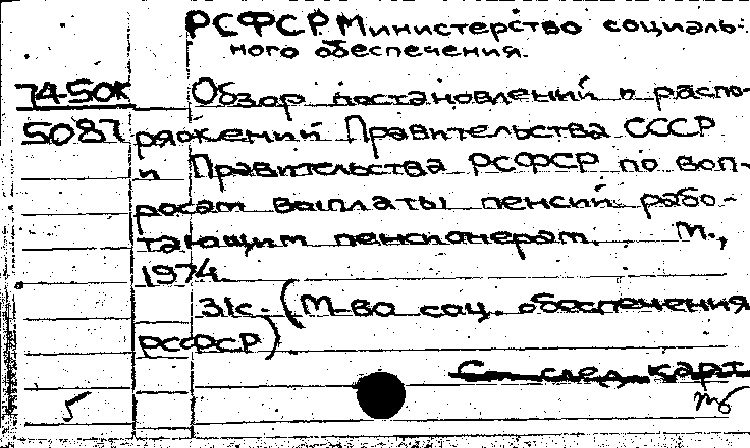 РСФСР Министерство социаль-
ного обеспечения.
74-50к Обзор постановлений и распо-
5087 ряжений Правительства СССР
и Правительства РСФСР по воп-
росам выплаты пенсий рабо-
тающим пенсионерам. М.,
1974.
31с. (М-во соц. обеспечения
РСФСР)
См. след. карт